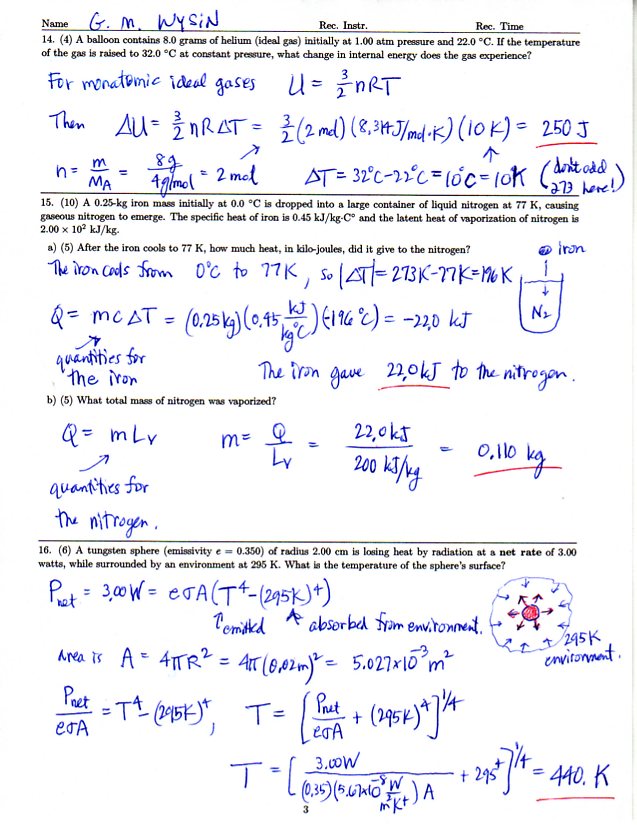 Name G. M. WYSIN Rec. Instr. Rec. Time
14. (4) A balloon contains 8.0 grams of helium (ideal gas) initially at 1.00 atm pressure and 22.0 °C. If the temperature
of the gas is raised to 32.0 °C at constant pressure, what change in internal energy does the gas experience?
For monatomic ideal gases U = 3/2 nRT
Then ΔU = 3/2 nRΔT = 3/2 (2 mol) (8.314 J/mol·K) (10 K) = 250 J
n = m/MA = 8g/4g/mol = 2 mol ΔT = 32°C - 22°C = 10°C = 10K (don't add 273 here!)
15. (10) A 0.25-kg iron mass initially at 0.0 °C is dropped into a large container of liquid nitrogen at 77 K, causing
gaseous nitrogen to emerge. The specific heat of iron is 0.45 kJ/kg·C° and the latent heat of vaporization of nitrogen is
2.00 × 10² kJ/kg.
a) (5) After the iron cools to 77 K, how much heat, in kilo-joules, did it give to the nitrogen?
iron
The iron cools from 0°C to 77K, so |ΔT| = 273K-77K=196K
N₂
Q = mcΔT = (0.25kg) (0.45 kJ/kg°C) (-196°C) = -22.0 kJ
quantities for
the iron
The iron gave 22.0 kJ to the nitrogen.
b) (5) What total mass of nitrogen was vaporized?
Q = mLv m = Q/Lv = 22.0 kJ/200 kJ/kg = 0.110 kg
quantities for
the nitrogen.
16. (6) A tungsten sphere (emissivity e = 0.350) of radius 2.00 cm is losing heat by radiation at a net rate of 3.00
watts, while surrounded by an environment at 295 K. What is the temperature of the sphere's surface?
Pnet = 3.00W = eσA(T⁴-(295K)⁴)
emitted absorbed from environment.
295K
environment.
Area is A = 4πR² = 4π(0.02m)² = 5.027×10⁻³ m²
Pnet/eσA = T⁴-(295K)⁴, T = [Pnet/eσA + (295K)⁴]^1/4
T = [3.00W/(0.35)(5.67×10⁻⁸ W/m²K⁴)A + 295⁴]^1/4 = 440. K
3